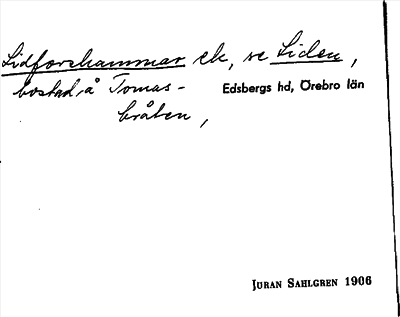 Lidforshammar ek, se Liden,
bostad å Tomas-
Edsbergs hd, Örebro län
bråten,
JURAN SAHLGREN 1906